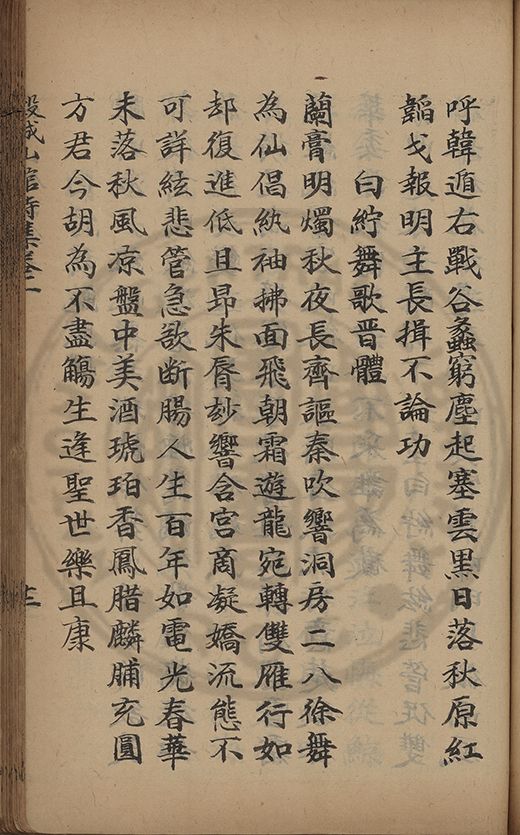 呼韓遁右戰谷蠡窮塵起塞雲黒日落秋原紅
韜戈報明主長揖不論功
白紵舞歌晋體
蘭膏明燭秋夜長齊謳秦吹響洞房二八徐舞
為仙倡紈袖拂面飛朝霜遊龍宛轉雙雁行如
却復進低且昻朱脣玅響含宮商凝嬌流態不
可詳絃悲管急欲断腸人生百年如電光春華
未落秋風凉盤中美酒琥珀香鳳腊麟脯充圓
方君今胡為不盡觴生逢聖世樂且康
穀城山館詩集卷一